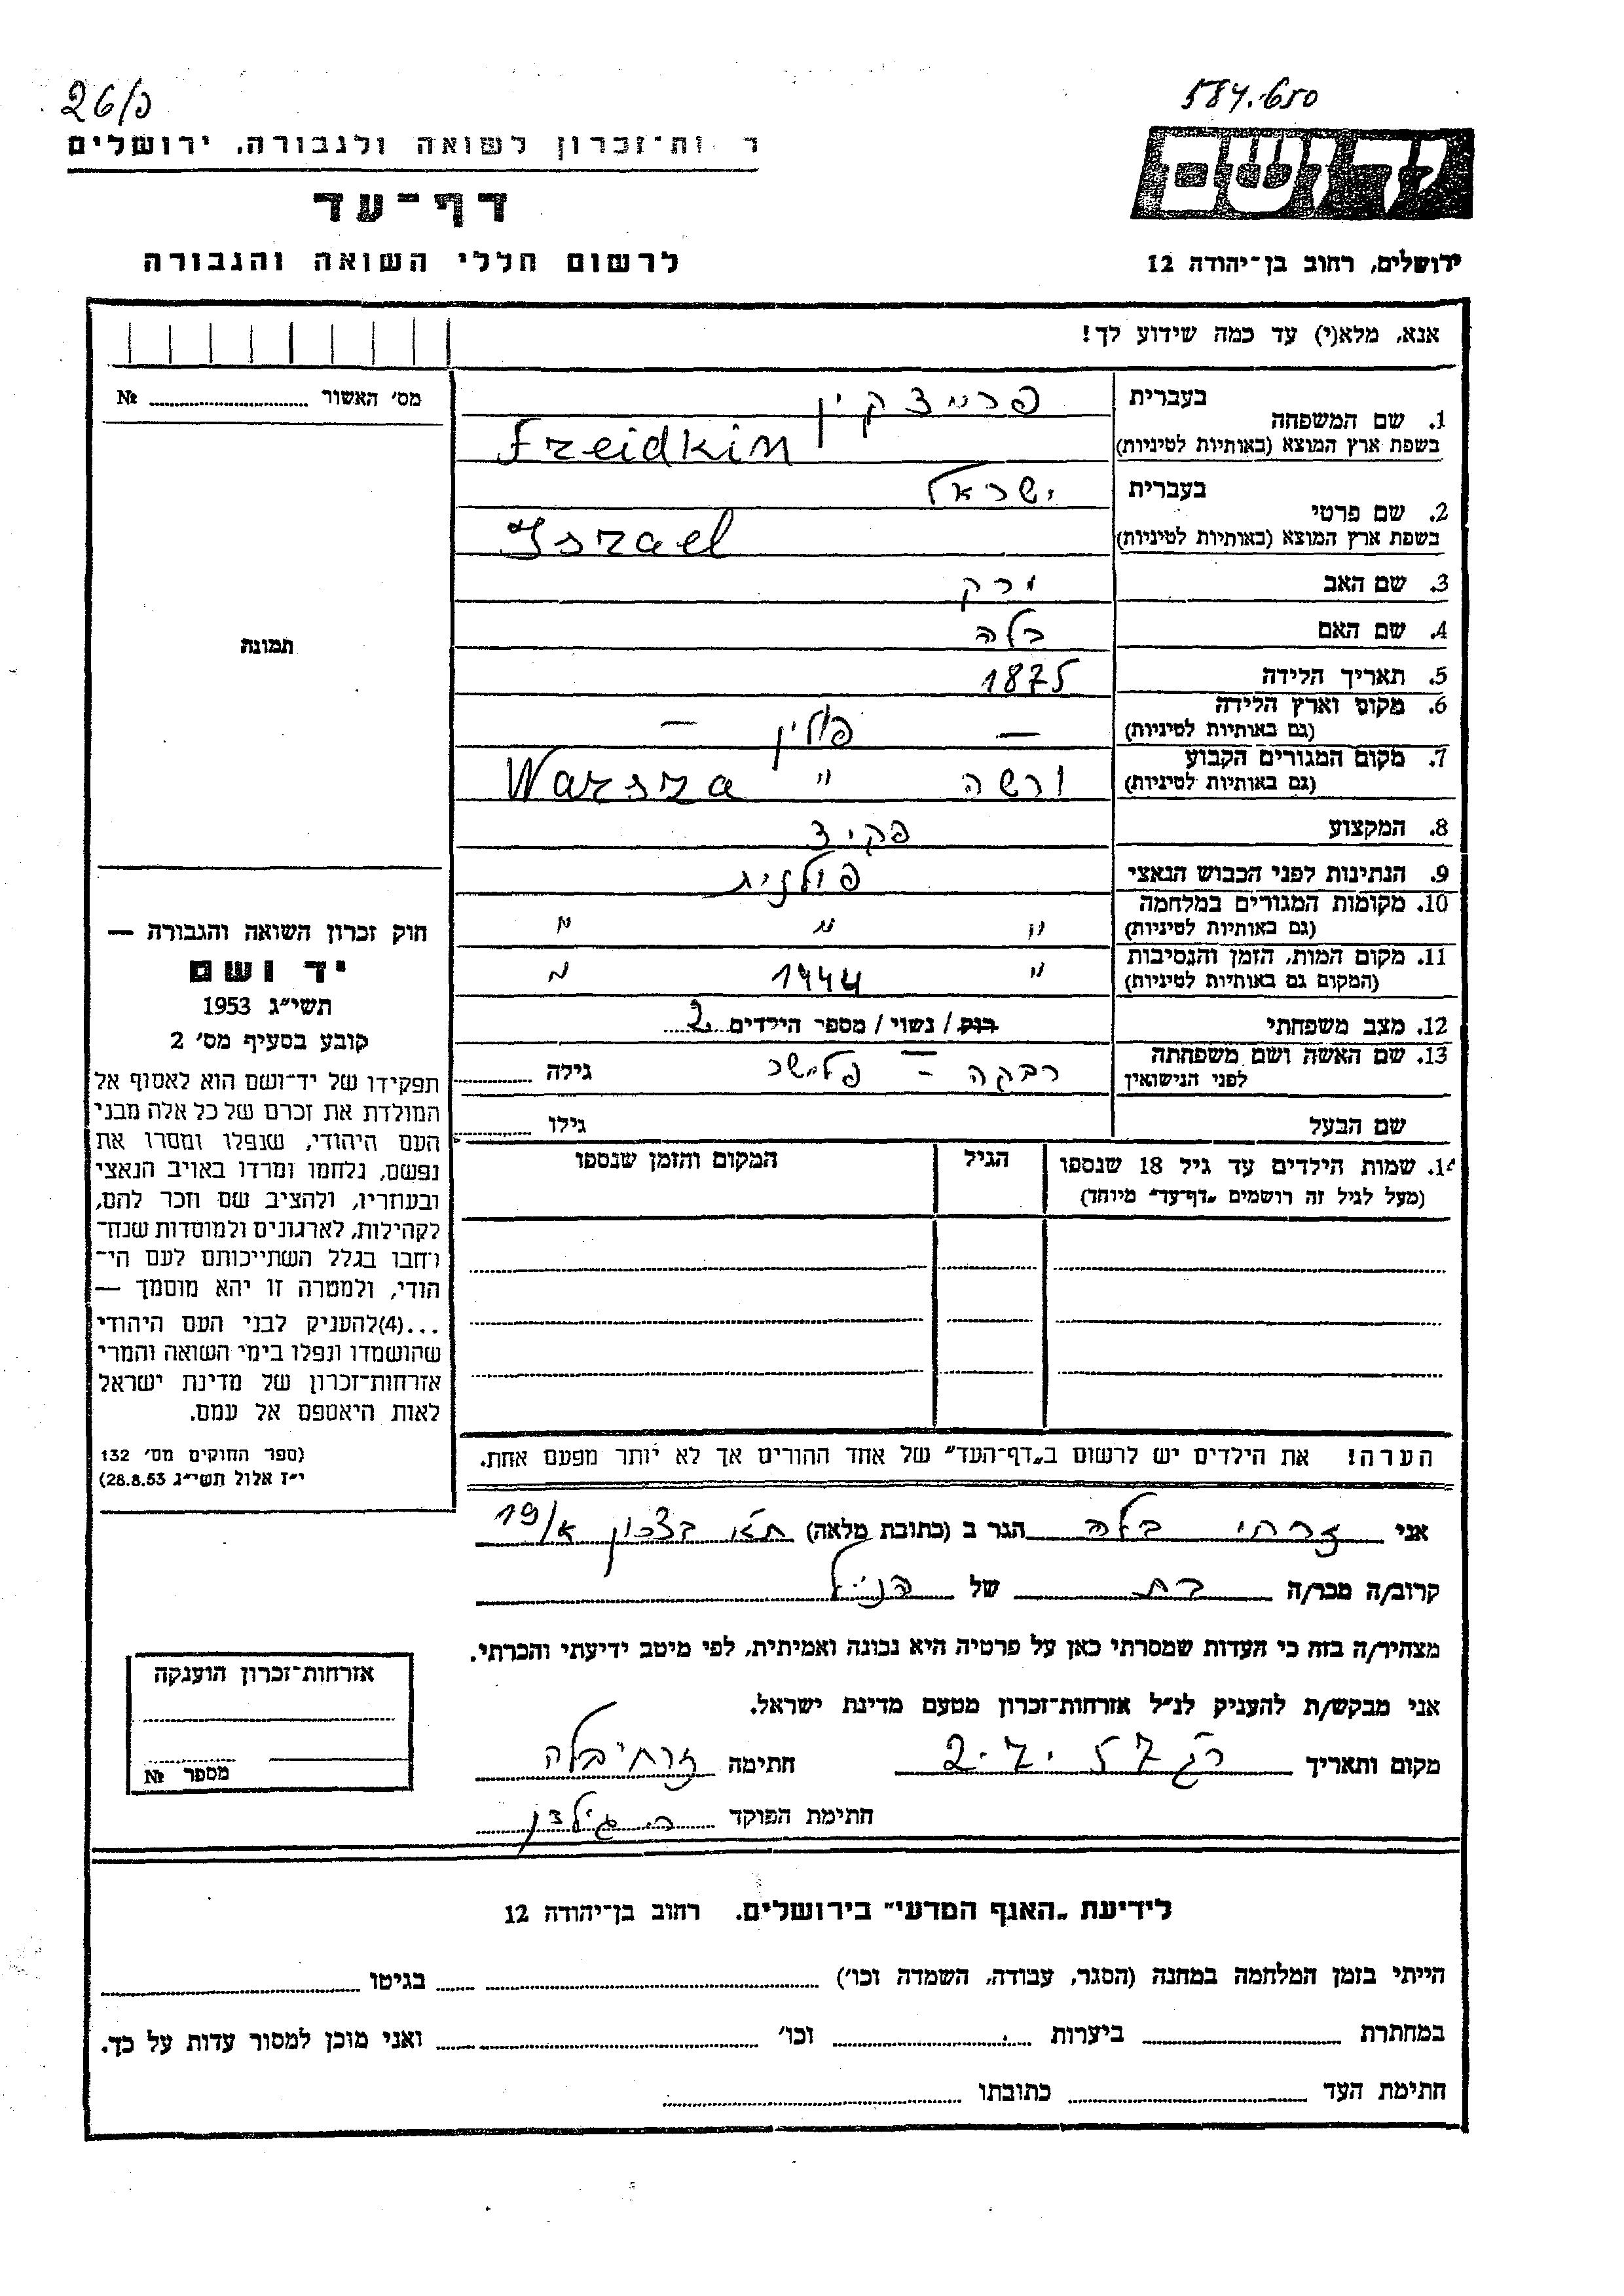 26/פ
584.650
ר ות־זכרון לשואה ולגבורה, ירושלים
דף־עד
לרשום חללי השואה והגבורה
יד ושם
ירושלים, רחוב בן־יהודה 12
אנא, מלא(י) עד כמה שידוע לך!
מס׳ האשור № 
תמונה
בעברית
1. שם המשפחה
בשפת ארץ המוצא (באותיות לטיניות)
פריידקין
Freidkin
בעברית
2. שם פרטי
בשפת ארץ המוצא (באותיות לטיניות)
ישראל
Israel
3. שם האב
4. שם האם בלה
5. תאריך הלידה 1875
6. מקום וארץ הלידה
(גם באותיות לטיניות)
— פולין —
7. מקום המגורים הקבוע
(גם באותיות לטיניות)
ורשה " Warsza
8. המקצוע פקיד
9. הנתינות לפני הכבוש הנאצי פולנית
10. מקומות המגורים במלחמה
(גם באותיות לטיניות)
" " "
11. מקום המות, הזמן והנסיבות
(המקום גם באותיות לטיניות)
" 1944 "
12. מצב משפחתי רוק / נשוי / מספר הילדים 2
13. שם האשה ושם משפחתה
לפני הנישואין
רבקה — פלישר גילה
שם הבעל גילו
14. שמות הילדים עד גיל 18 שנספו
(מעל לגיל זה רושמים „דף־עד״ מיוחד)
הגיל
המקום והזמן שנספו
הערה! את הילדים יש לרשום ב„דף־העד״ של אחד ההורים אך לא יותר מפעם אחת.
חוק זכרון השואה והגבורה —
יד ושם
תשי״ג 1953
קובע בסעיף מס׳ 2
תפקידו של יד־ושם הוא לאסוף אל
המולדת את זכרם של כל אלה מבני
העם היהודי, שנפלו ומסרו את
נפשם, נלחמו ומרדו באויב הנאצי
ובעוזריו, ולהציב שם וזכר להם,
לקהילות, לארגונים ולמוסדות שנח־
רחבו בגלל השתייכותם לעם הי־
הודי, ולמטרה זו יהא מוסמך —
...(4)להעניק לבני העם היהודי
שהושמדו ונפלו בימי השואה והמרי
אזרחות־זכרון של מדינת ישראל
לאות היאספם אל עמם.
(ספר החוקים מס׳ 132
י״ז אלול תשי״ג 28.8.53)
אני זרחי בלה הגר ב (כתובת מלאה) בצרון א/19
קרוב/ה מכר/ה בת של הנ״ל
מצהיר/ה בזה כי העדות שמסרתי כאן על פרטיה היא נכונה ואמיתית, לפי מיטב ידיעתי והכרתי.
אני מבקש/ת להעניק לנ״ל אזרחות־זכרון מטעם מדינת ישראל.
מקום ותאריך ר״ג 2.7.57 חתימה זרחי בלה
חתימת הפוקד
אזרחות־זכרון הוענקה
מספר №
לידיעת „האגף המדעי״ בירושלים. רחוב בן־יהודה 12
הייתי בזמן המלחמה במחנה (הסגר, עבודה, השמדה וכו׳) בגיטו
במחתרת ביערות וכו׳ ואני מוכן למסור עדות על כך.
חתימת העד כתובתו